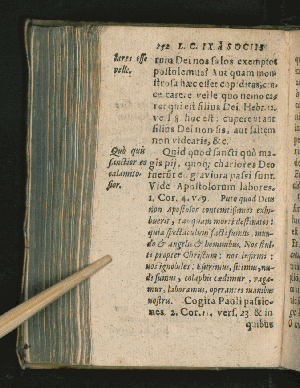 192 I. C. IX à SOCIIS
heres esse
velle.
rmo Dei nos solos exemptos
postulemus? Aut quàm mon-
strosa hæc esset cupiditas, cru-
ce carere velle quo nemo ca-
ret qui est filius Dei Hebr. 12.
ve. § 8. hoc est: cupere ut aut
filius Dei non sis, aut saltem
non videaris, &c.
Quò quis
sanctior eò
calamito-
sior.
Quid quòd sancti quò ma-
gis pij, quoq; chariores Deo
fuerūt eò graviora passi sunt.
Vide Apostolorum labores.
1. Cor. 4. v. 9. Puto quod Deus
non Apostolos contemtissimos exhi-
buerit, tanquam morti destinatos:
quia spectaculum facti sumus mun-
do & angelis & hominibus. Nos stul-
ti propter Christum: nos infirmi:
nos ignobiles: Esurimus, sitimus, nu-
di sumus, colaphis cædimur, vaga-
mur, laboramus, operantes manibus
nostris. Cogita Pauli passio-
nes. 2. Cor. 11. vers. 23. & in
quibus